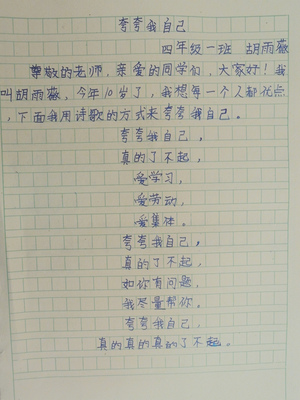 夸夸我自己
四年级一班 胡雨薇
尊敬的老师，亲爱的同学们，大家好！我
叫胡雨薇，今年10岁了，我想每一个人都优点
，下面我用诗歌的方式来夸夸我自己。
夸夸我自己，
真的了不起，
爱学习，
爱劳动，
爱集体。
夸夸我自己，
真的了不起，
如你有问题，
我尽量帮你。
夸夸我自己，
真的真的真的了不起。